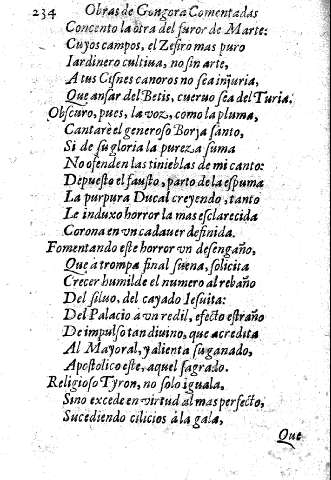 234 Obras de Gongora Comentadas
Concento la otra del furor de Marte:
Cuyos campos, el Zefiro mas puro
Iardinero cultiua, no sin arte,
A tus Cisnes canoros no sea injuria,
Que ansar del Betis, cueruo sea del Turia.
Obscuro, pues, la voz, como la pluma,
Cantarè el generoso Borja santo,
Si de su gloria la pureza suma
No ofenden las tinieblas de mi canto:
Depuesto el fausto, parto de la espuma
La purpura Ducal creyendo, tanto
Le induxo horror la mas esclarecida
Corona en vn cadauer definida.
Fomentando este horror vn desengaño,
Que a trompa final suena, solicita
Crecer humilde el numero al rebaño
Del siluo, del cayado Iesuita:
Del Palacio à vn redil, efecto estraño
De impulso tan diuino, que acredita
Al Mayoral, y alienta su ganado,
Apostolico este, aquel sagrado.
Religioso Tyron, no solo iguala,
Sino excede en virtud al mas perfecto,
Sucediendo cilicios à la gala,
Que